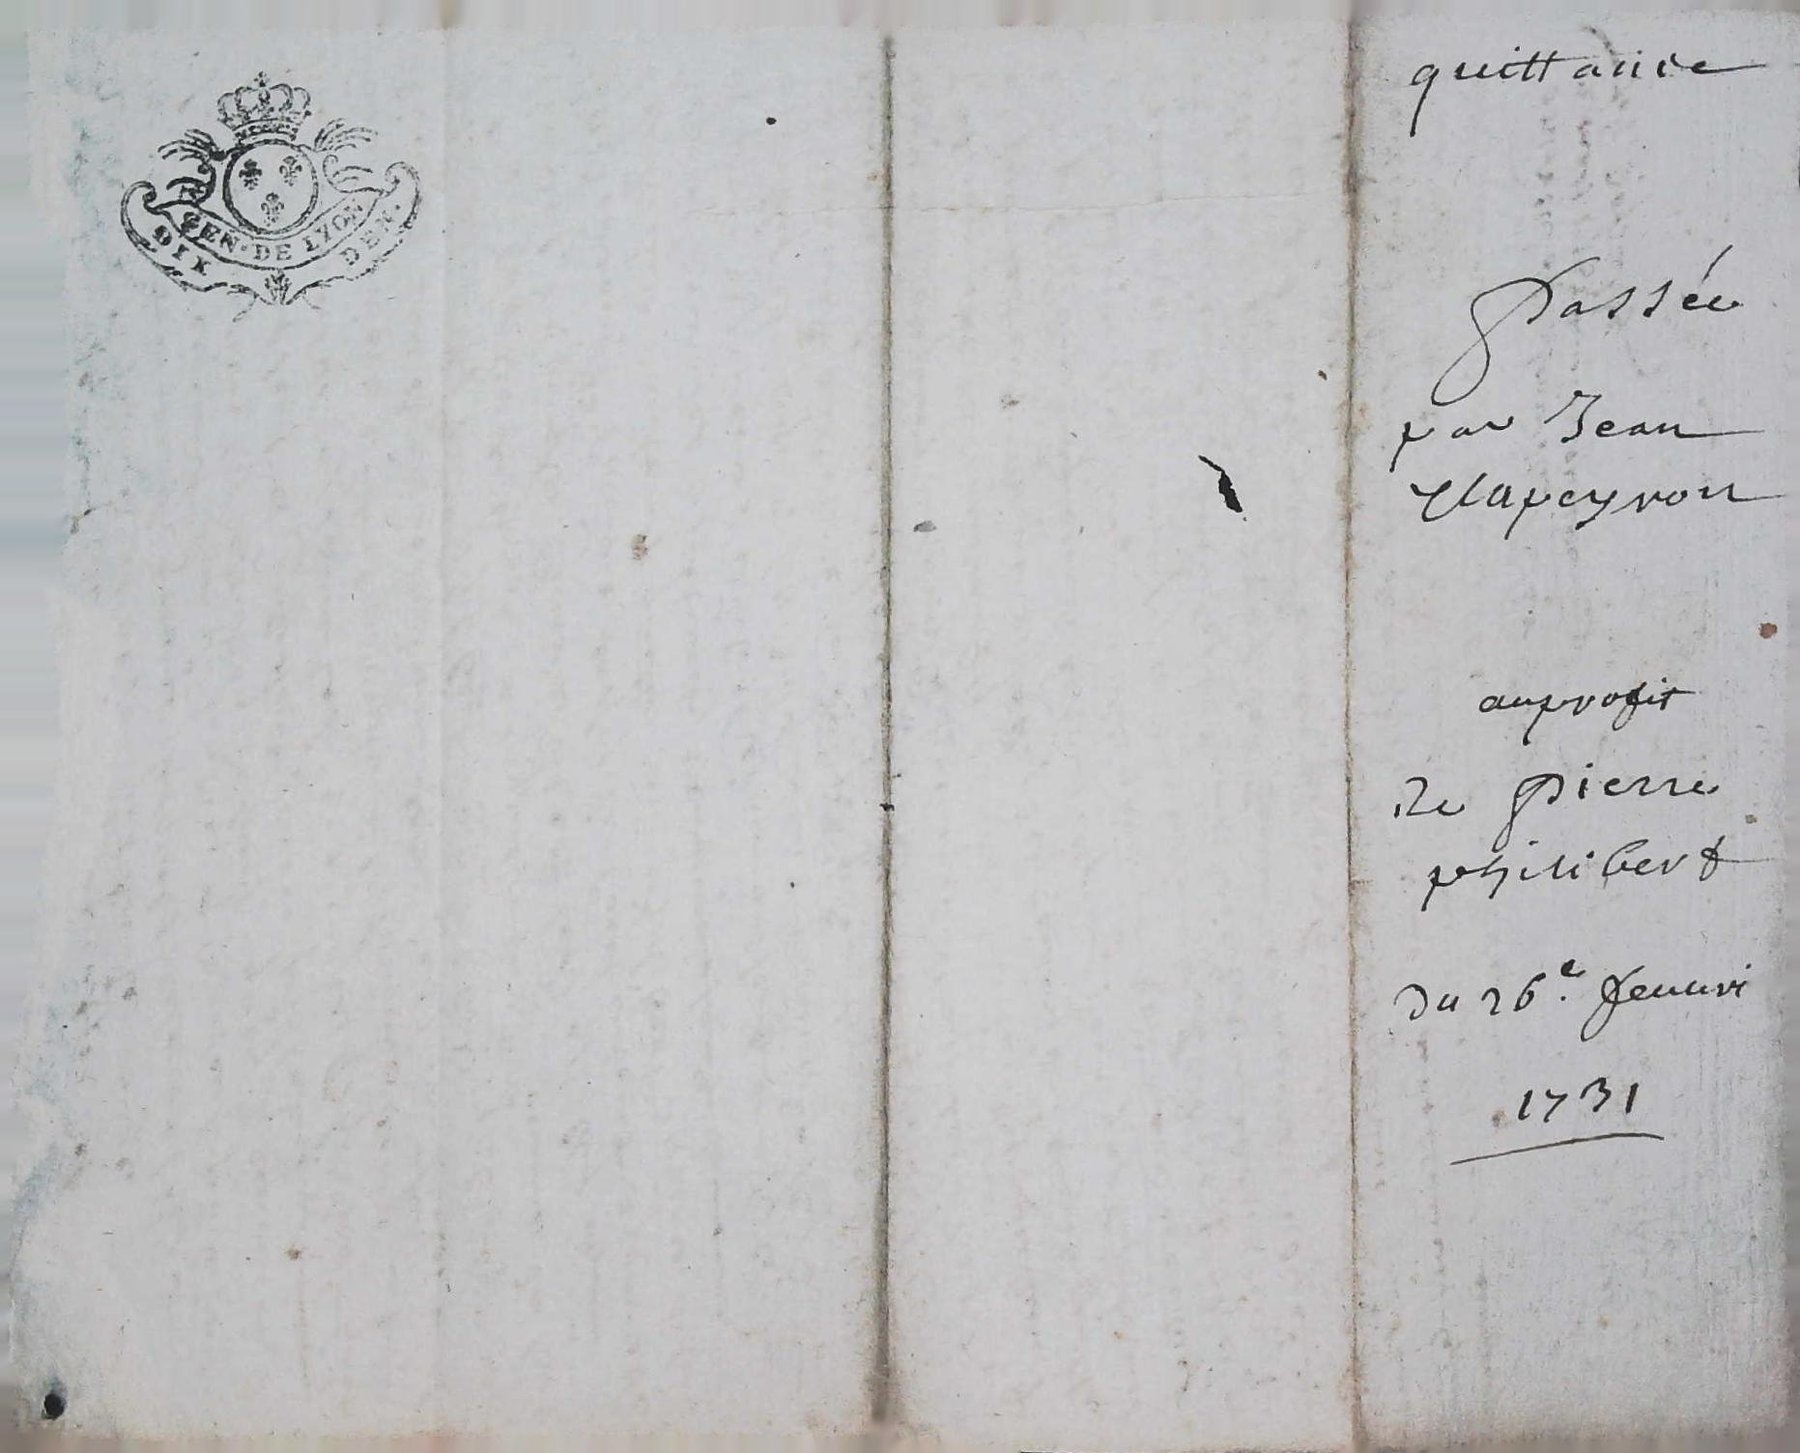 GEN·DE LYON
DIX DEN·
quittance
Passée
par Jean
Clapeyron
au profit
de Pierre
philibert
du 26e. feuuri
1731